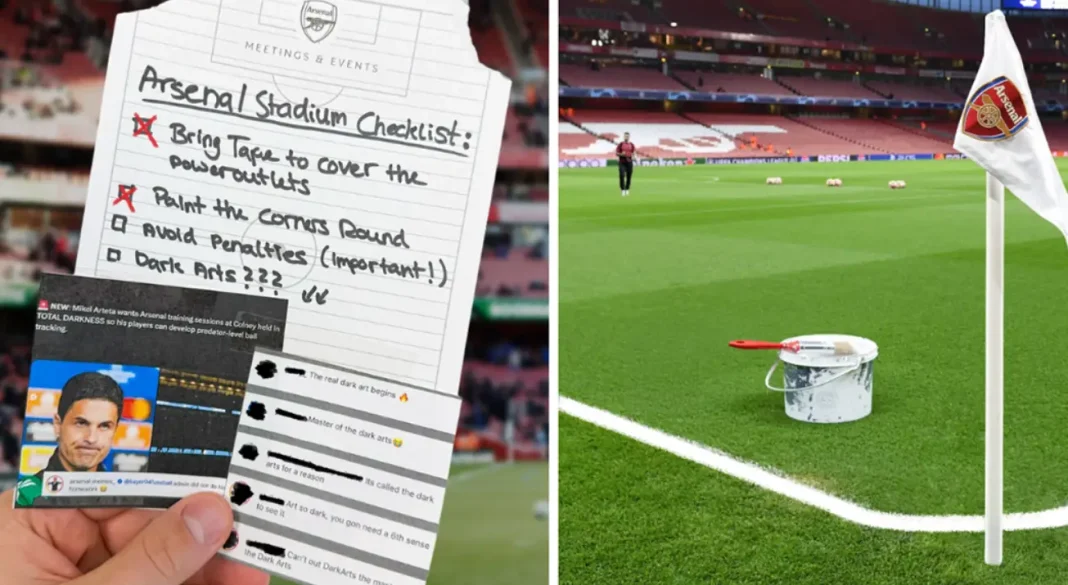 Arsenal
MEETINGS & EVENTS
Arsenal Stadium Checklist:
Bring Tape to cover the
poweroutlets
Paint the Corners Round
Avoid Penalties (Important!)
Dark Arts???
NEW: Mikel Arteta wants Arsenal training sessions at Colney held in
TOTAL DARKNESS so his players can develop predator-level ball
tracking.
arsenal.memes_
admin did
homework
The real dark art begins
Master of the dark arts
Its called the dark
arts for a reason
Art so dark, you gon need a 6th sense
to see it
Can't out DarkArts the
the Dark Arts
Arsenal
PEPSI